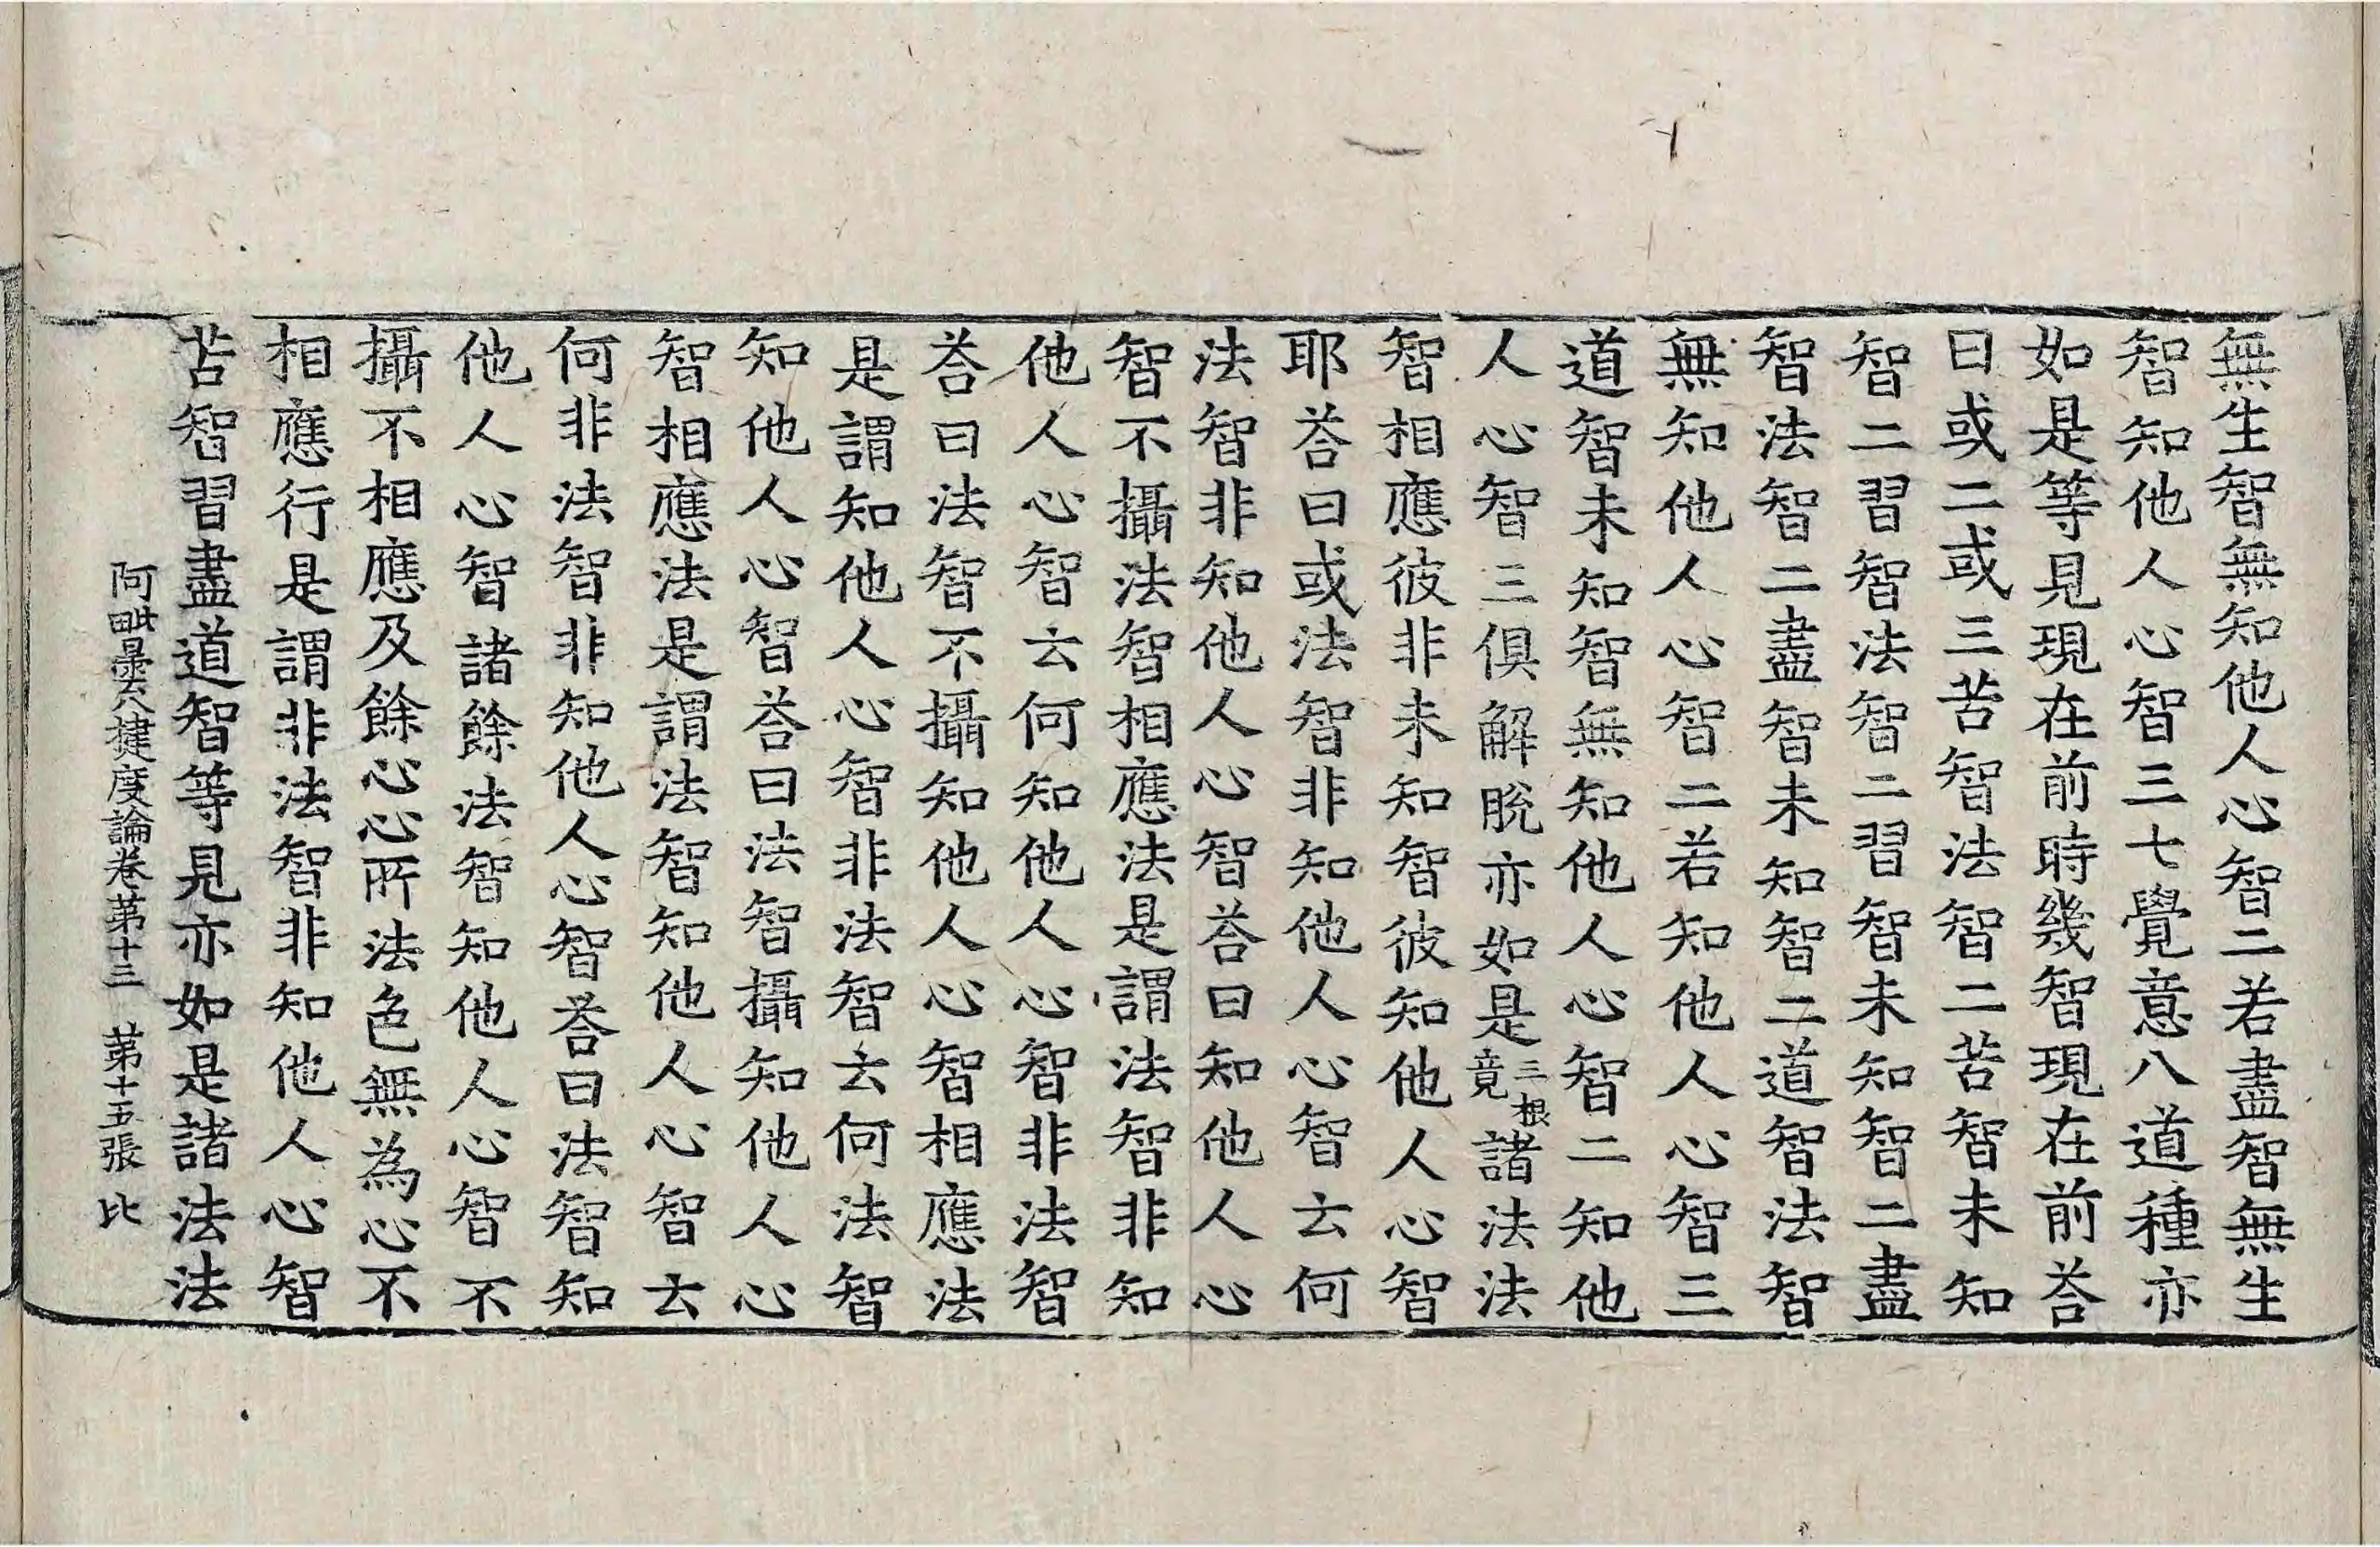 無生智無知他人心智二若盡智無生
智知他人心智三七覺意八道種亦
如是等見現在前時幾智現在前荅
曰或二或三苦智法智二苦智未知
智二習智法智二習智未知智二盡
智法智二盡智未知智二道智法智
無知他人心智二若知他人心智三
道智未知智無知他人心智二知他
人心智三俱解脫亦如是三根竟諸法法
智相應彼非未知智彼知他人心智
耶荅曰或法智非知他人心智云何
法智非知他人心智荅曰知他人心
智不攝法智相應法是謂法智非知
他人心智云何知他人心智非法智
荅曰法智不攝知他人心智相應法
是謂知他人心智非法智云何法智
知他人心智荅曰法智攝知他人心
智相應法是謂法智知他人心智云
何非法智非知他人心智荅曰法智知
他人心智諸餘法智知他人心智不
攝不相應及餘心心所法色無為心不
相應行是謂非法智非知他人心智
苦智習盡道智等見亦如是諸法法
阿毗曇八揵度論卷第十三 第十五張 比